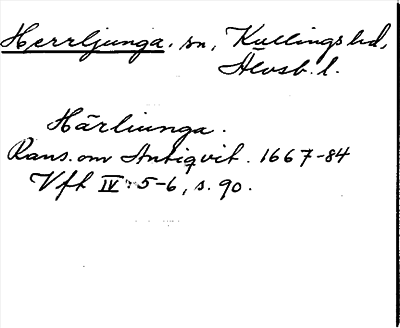 Herrljunga, sn, Kullings hd,
Älvsb. l.
Härliunga.
Rans. om Antiqvit. 1667-84
Vft IV: 5-6, s. 90.